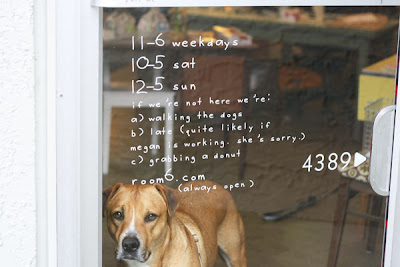 11-6 weekdays
10-5 sat
12-5 sun
if we're not here we're:
a) walking the dogs
b) late (quite likely if
megan is working. she's sorry.)
c) grabbing a donut
4389
room6.com
(always open)